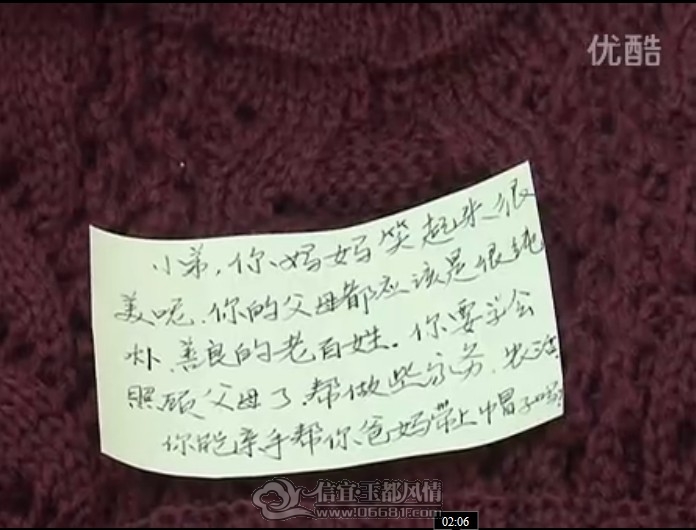 优酷
小弟,你妈妈笑起来很
美呢.你的父母都应该是很纯
朴.善良的老百姓.你要学会
照顾父母了,帮做些家务.农活
你能亲手帮你爸妈带上巾冒子吗?
信宜·玉都风情
www.06681.com
02:06